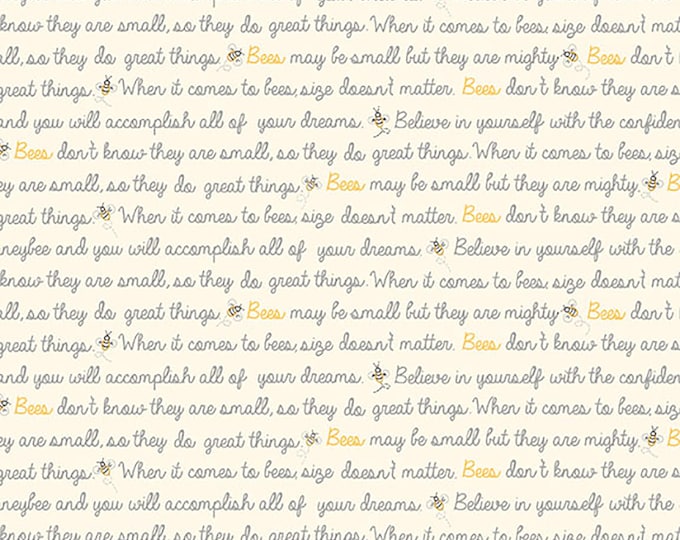 know they are small, so they do great things. When it comes to bees, size doesn't mat
all, so they do great things. Bees may be small but they are mighty. Bees don't
great things. When it comes to bees, size doesn't matter. Bees don't know they are s
and you will accomplish all of your dreams. Believe in yourself with the confiden
Bees don't know they are small, so they do great things. When it comes to bees, siz
ey are small, so they do great things. Bees may be small but they are mighty. B
great things. When it comes to bees, size doesn't matter. Bees don't know they are s
neybee and you will accomplish all of your dreams. Believe in yourself with the
know they are small, so they do great things. When it comes to bees, size doesn't ma
all, so they do great things. Bees may be small but they are mighty. Bees don't
great things. When it comes to bees, size doesn't matter. Bees don't know they are s
and you will accomplish all of your dreams. Believe in yourself with the confiden
Bees don't know they are small, so they do great things. When it comes to bees, siz
ey are small, so they do great things. Bees may be small but they are mighty. B
great things. When it comes to bees, size doesn't matter. Bees don't know they are s
neybee and you will accomplish all of your dreams. Believe in yourself with the
know they are small, so they do great things. When it comes to bees, size doesn't ma